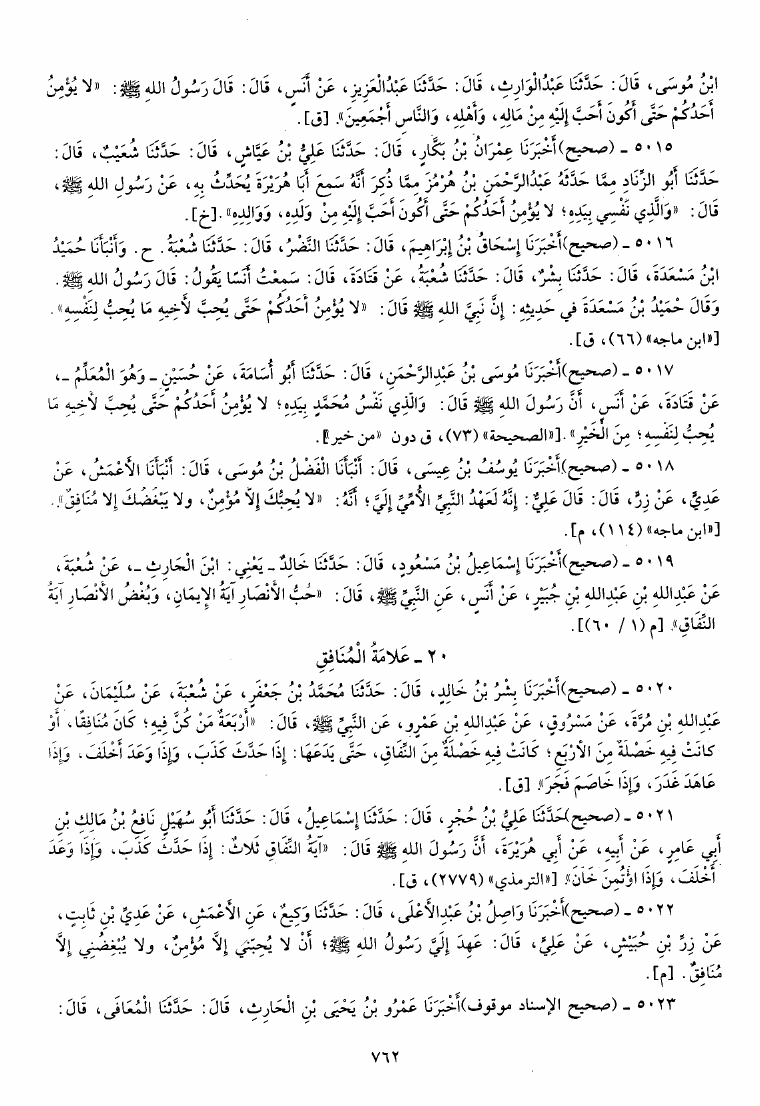 ابْنُ مُوسَى، قَالَ: حَدَّثَنَا عَبْدُالْوَارِثِ، قَالَ: حَدَّثَنَا عَبْدُالْعَزِيزِ، عَنْ أَنَسٍ، قَالَ: قَالَ رَسُولُ اللهِ ﷺ: «لا يُؤْمِنُ
أَحَدُكُمْ حَتَّى أَكُونَ أَحَبَّ إِلَيْهِ مِنْ مَالِهِ، وَأَهْلِهِ، وَالنَّاسِ أَجْمَعِينَ». [ق].
٥٠١٥ ـ (صحيح) أَخْبَرَنَا عِمْرَانُ بْنُ بَكَّارٍ، قَالَ: حَدَّثَنَا عَلِيُّ بْنُ عَيَّاشٍ، قَالَ: حَدَّثَنَا شُعَيْبٌ، قَالَ:
حَدَّثَنَا أَبُو الزِّنَادِ مِمَّا حَدَّثَهُ عَبْدُالرَّحْمَنِ بْنُ هُرْمُزَ مِمَّا ذُكِرَ أَنَّهُ سَمِعَ أَبَا هُرَيْرَةَ يُحَدِّثُ بِهِ، عَنْ رَسُولِ اللهِ ﷺ،
قَالَ: «وَالَّذِي نَفْسِي بِيَدِهِ؛ لا يُؤْمِنُ أَحَدُكُمْ حَتَّى أَكُونَ أَحَبَّ إِلَيْهِ مِنْ وَلَدِهِ، وَوَالِدِهِ». [خ].
٥٠١٦ ـ (صحيح) أَخْبَرَنَا إِسْحَاقُ بْنُ إِبْرَاهِيمَ، قَالَ: حَدَّثَنَا النَّضْرُ، قَالَ: حَدَّثَنَا شُعْبَةُ. ح. وَأَنْبَأَنَا حُمَيْدُ
ابْنُ مَسْعَدَةَ، قَالَ: حَدَّثَنَا بِشْرٌ، قَالَ: حَدَّثَنَا شُعْبَةُ، عَنْ قَتَادَةَ، قَالَ: سَمِعْتُ أَنَسًا يَقُولُ: قَالَ رَسُولُ اللهِ ﷺ.
وَقَالَ حُمَيْدُ بْنُ مَسْعَدَةَ في حَدِيثِهِ: إِنَّ نَبِيَّ اللهِ ﷺ قَالَ: «لا يُؤْمِنُ أَحَدُكُمْ حَتَّى يُحِبَّ لأَخِيهِ مَا يُحِبُّ لِنَفْسِهِ».
[«ابن ماجه» (٦٦)، ق].
٥٠١٧ ـ (صحيح) أَخْبَرَنَا مُوسَى بْنُ عَبْدِالرَّحْمَنِ، قَالَ: حَدَّثَنَا أَبُو أُسَامَةَ، عَنْ حُسَيْنٍ ـ وَهُوَ الْمُعَلِّمُ ـ،
عَنْ قَتَادَةَ، عَنْ أَنَسٍ، أَنَّ رَسُولَ اللهِ ﷺ قَالَ: وَالَّذِي نَفْسُ مُحَمَّدٍ بِيَدِهِ؛ لا يُؤْمِنُ أَحَدُكُمْ حَتَّى يُحِبَّ لأَخِيهِ مَا
يُحِبُّ لِنَفْسِهِ؛ مِنَ الْخَيْرِ». [«الصحيحة» (٧٣)، ق دون «من خير»].
٥٠١٨ ـ (صحيح) أَخْبَرَنَا يُوسُفُ بْنُ عِيسَى، قَالَ: أَنْبَأَنَا الْفَضْلُ بْنُ مُوسَى، قَالَ: أَنْبَأَنَا الأَعْمَشُ، عَنْ
عَدِيٍّ، عَنْ زِرٍّ، قَالَ: قَالَ عَلِيٌّ: إِنَّهُ لَعَهْدُ النَّبِيِّ الأُمِّيِّ إِلَيَّ؛ أَنَّهُ: «لا يُحِبُّكَ إِلاَّ مُؤْمِنٌ، ولا يَبْغَضُكَ إِلا مُنَافِقٌ».
[«ابن ماجه» (١١٤)، م].
٥٠١٩ ـ (صحيح) أَخْبَرَنَا إِسْمَاعِيلُ بْنُ مَسْعُودٍ، قَالَ: حَدَّثَنَا خَالِدٌ ـ يَعْنِي: ابْنَ الْحَارِثِ ـ، عَنْ شُعْبَةَ،
عَنْ عَبْدِاللهِ بْنِ عَبْدِاللهِ بْنِ جُبَيْرٍ، عَنْ أَنَسٍ، عَنِ النَّبِيِّ ﷺ، قَالَ: «حُبُّ الأَنْصَارِ آيَةُ الإِيمَانِ، وَبُغْضُ الأَنْصَارِ آيَةُ
النِّفَاقِ». [م (١ / ٦٠)].
٢٠ ـ عَلاَمَةُ الْمُنَافِقِ
٥٠٢٠ ـ (صحيح) أَخْبَرَنَا بِشْرُ بْنُ خَالِدٍ، قَالَ: حَدَّثَنَا مُحَمَّدُ بْنُ جَعْفَرٍ، عَنْ شُعْبَةَ، عَنْ سُلَيْمَانَ، عَنْ
عَبْدِاللهِ بْنِ مُرَّةَ، عَنْ مَسْرُوقٍ، عَنْ عَبْدِاللهِ بْنِ عَمْرٍو، عَنِ النَّبِيِّ ﷺ، قَالَ: «أَرْبَعَةٌ مَنْ كُنَّ فِيهِ؛ كَانَ مُنَافِقًا، أَوْ
كَانَتْ فِيهِ خَصْلَةٌ مِنَ الأَرْبَعِ؛ كَانَتْ فِيهِ خَصْلَةٌ مِنَ النِّفَاقِ، حَتَّى يَدَعَهَا: إِذَا حَدَّثَ كَذَبَ، وَإِذَا وَعَدَ أَخْلَفَ، وَإِذَا
عَاهَدَ غَدَرَ، وَإِذَا خَاصَمَ فَجَرَ». [ق].
٥٠٢١ ـ (صحيح) حَدَّثَنَا عَلِيُّ بْنُ حُجْرٍ، قَالَ: حَدَّثَنَا إِسْمَاعِيلُ، قَالَ: حَدَّثَنَا أَبُو سُهَيْلٍ نَافِعُ بْنُ مَالِكِ بْنِ
أَبِي عَامِرٍ، عَنْ أَبِيهِ، عَنْ أَبِي هُرَيْرَةَ، أَنَّ رَسُولَ اللهِ ﷺ قَالَ: «آيَةُ النِّفَاقِ ثَلاثٌ: إِذَا حَدَّثَ كَذَبَ، وَإِذَا وَعَدَ
أَخْلَفَ، وَإِذَا اؤْتُمِنَ خَانَ». [«الترمذي» (٢٧٧٩)، ق].
٥٠٢٢ ـ (صحيح) أَخْبَرَنَا وَاصِلُ بْنُ عَبْدِالأَعْلَى، قَالَ: حَدَّثَنَا وَكِيعٌ، عَنِ الأَعْمَشِ، عَنْ عَدِيِّ بْنِ ثَابِتٍ،
عَنْ زِرِّ بْنِ حُبَيْشٍ، عَنْ عَلِيٍّ، قَالَ: عَهِدَ إِلَيَّ رَسُولُ اللهِ ﷺ؛ أَنْ لا يُحِبَّنِي إِلاَّ مُؤْمِنٌ، ولا يُبْغِضُنِي إِلاَّ
مُنَافِقٌ. [م].
٥٠٢٣ ـ (صحيح الإسناد موقوف) أَخْبَرَنَا عَمْرُو بْنُ يَحْيَى بْنِ الْحَارِثِ، قَالَ: حَدَّثَنَا الْمُعَافَى، قَالَ:
٧٦٢